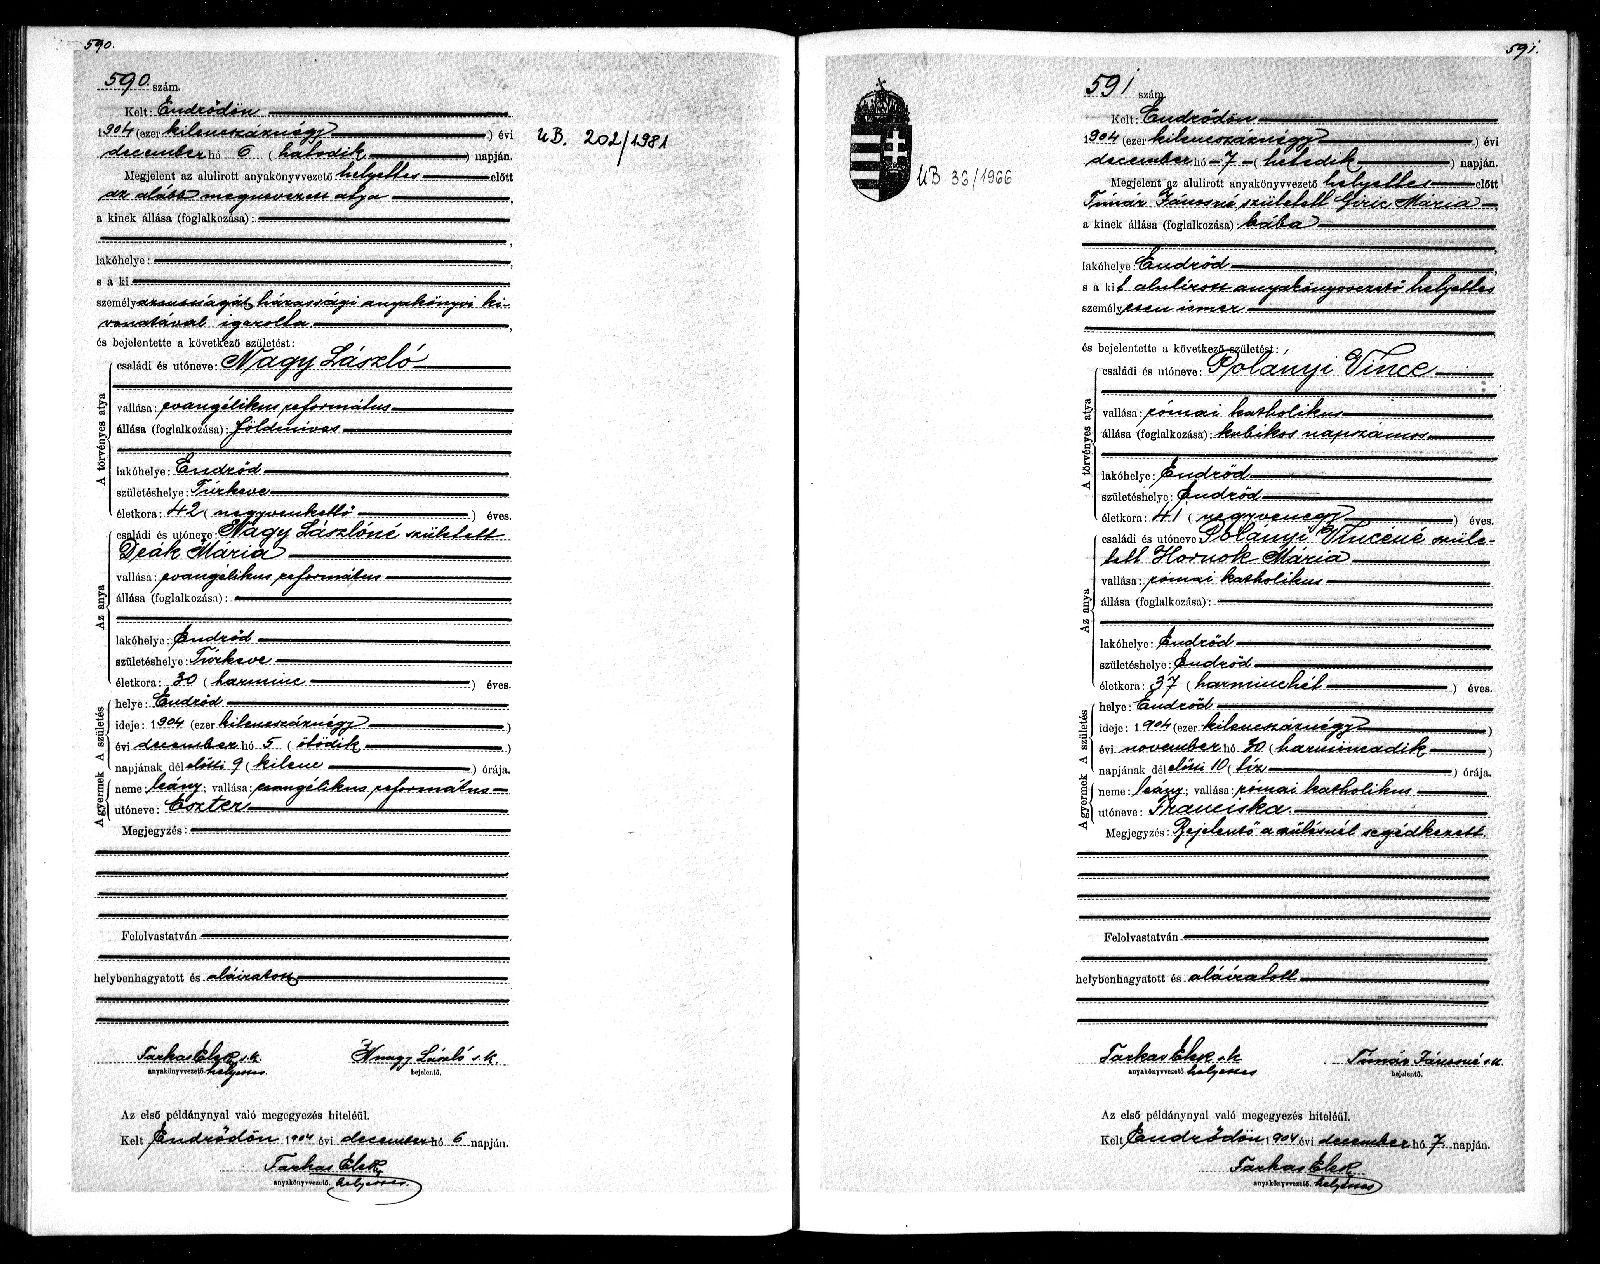 590.
590 szám.
Kelt: Endrődön
1904 (ezer kilencszáznégy) évi
december hó 6 (hatodik) napján.
Megjelent az alulirott anyakönyvvezető helyettes előtt
az alább megnevezett atya,
a kinek állása (foglalkozása):
lakóhelye:
s a ki
személyazonosságát házassági anyakönyvi ki-
vonatával igazolta,
és bejelentette a következő születést:
A törvényes atya
családi és utóneve: Nagy László
vallása: evangélikus református
állása (foglalkozása): földmives
lakóhelye: Endrőd
születéshelye: Túrkeve
életkora: 42 (negyvenkettő) éves.
Az anya
családi és utóneve: Nagy Lászlóné született
Deák Mária
vallása: evangélikus református
állása (foglalkozása):
lakóhelye: Endrőd
születéshelye: Túrkeve
életkora: 30 (harminc) éves.
A születés
helye: Endrőd
ideje: 1904 (ezer kilencszáznégy)
évi december hó 5 (ötödik)
napjának dél előtti 9 (kilenc) órája.
A gyermek
neme: leány; vallása: evangélikus református
utóneve: Eszter
Megjegyzés:
Felolvastatván
helybenhagyatott és aláiratott
Farkas Elek s.k.
anyakönyvvezető helyettes
H nagy László s.k.
bejelentő.
Az első példánynyal való megegyezés hiteléül.
Kelt Endrődön 1904 évi december hó 6 napján.
Farkas Elek
anyakönyvvezető. helyettes
UB. 202/1981
591.
591 szám.
UB 33/1966
Kelt: Endrődön
1904 (ezer kilencszáznégy) évi
december hó 7 (hetedik) napján.
Megjelent az alulirott anyakönyvvezető helyettes előtt
Timár Jánosné született Giric Mária,
a kinek állása (foglalkozása): bába
lakóhelye: Endrőd
s a kit alulirott anyakönyvvezető helyettes
személyesen ismer
és bejelentette a következő születést:
A törvényes atya
családi és utóneve: Polányi Vince
vallása: római katholikus
állása (foglalkozása): kubikos napszámos
lakóhelye: Endrőd
születéshelye: Endrőd
életkora: 41 (negyvenegy) éves.
Az anya
családi és utóneve Polányi Vincéné szüle-
tett Hornok Mária
vallása: római katholikus
állása (foglalkozása):
lakóhelye: Endrőd
születéshelye: Endrőd
életkora: 37 (harminchét) éves.
A születés
helye: Endrőd
ideje: 1904 (ezer kilencszáznégy)
évi november hó 30 (harmincadik)
napjának dél előtti 10 (tíz) órája.
A gyermek
neme: leány; vallása: római katholikus
utóneve: Franciska
Megjegyzés: Bejelentő a szülésnél segédkezett
Felolvastatván
helybenhagyatott és aláíratott
Farkas Elek s.k
anyakönyvvezető helyettes
Timár Jánosné s.k.
bejelentő.
Az első példánynyal való megegyezés hiteléül.
Kelt Endrődön 1904 évi december hó 7 napján.
Farkas Elek
anyakönyvvezető. helyettes